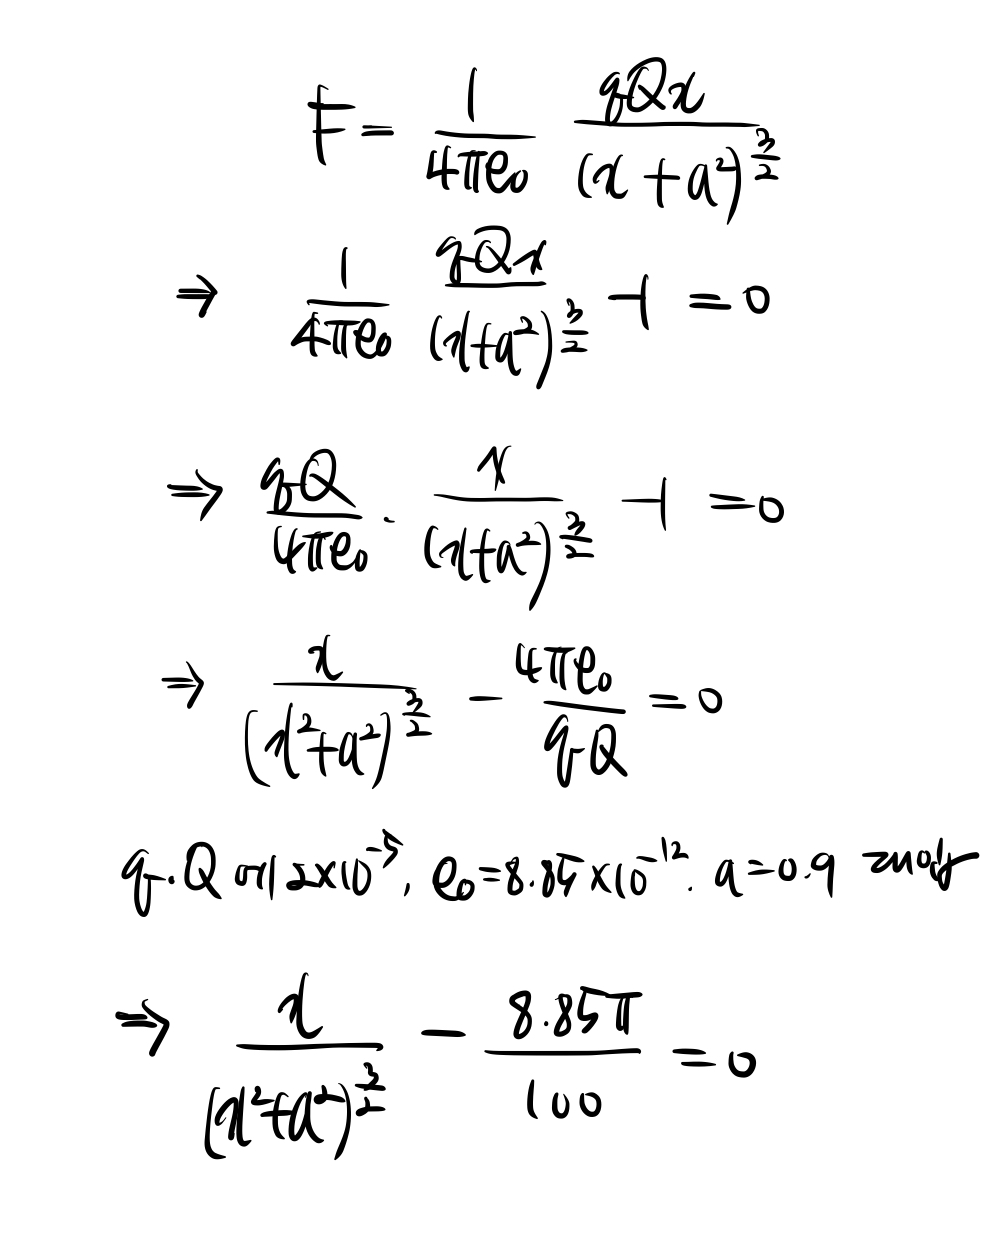 F = \frac{1}{4πe₀} \frac{qQx}{(x + a²)^{\frac{3}{2}}}
⇒ \frac{1}{4πe₀} \frac{qQx}{(x+a²)^{\frac{3}{2}}} - 1 = 0
⇒ \frac{qQ}{4πe₀} · \frac{x}{(x+a²)^{\frac{3}{2}}} - 1 = 0
⇒ \frac{x}{(x²+a²)^{\frac{3}{2}}} - \frac{4πe₀}{qQ} = 0
q.Q 2×10⁻⁵, e₀=8.85×10⁻¹². a=0.9
⇒ \frac{x}{(x²+a²)^{\frac{3}{2}}} - \frac{8.85π}{100} = 0